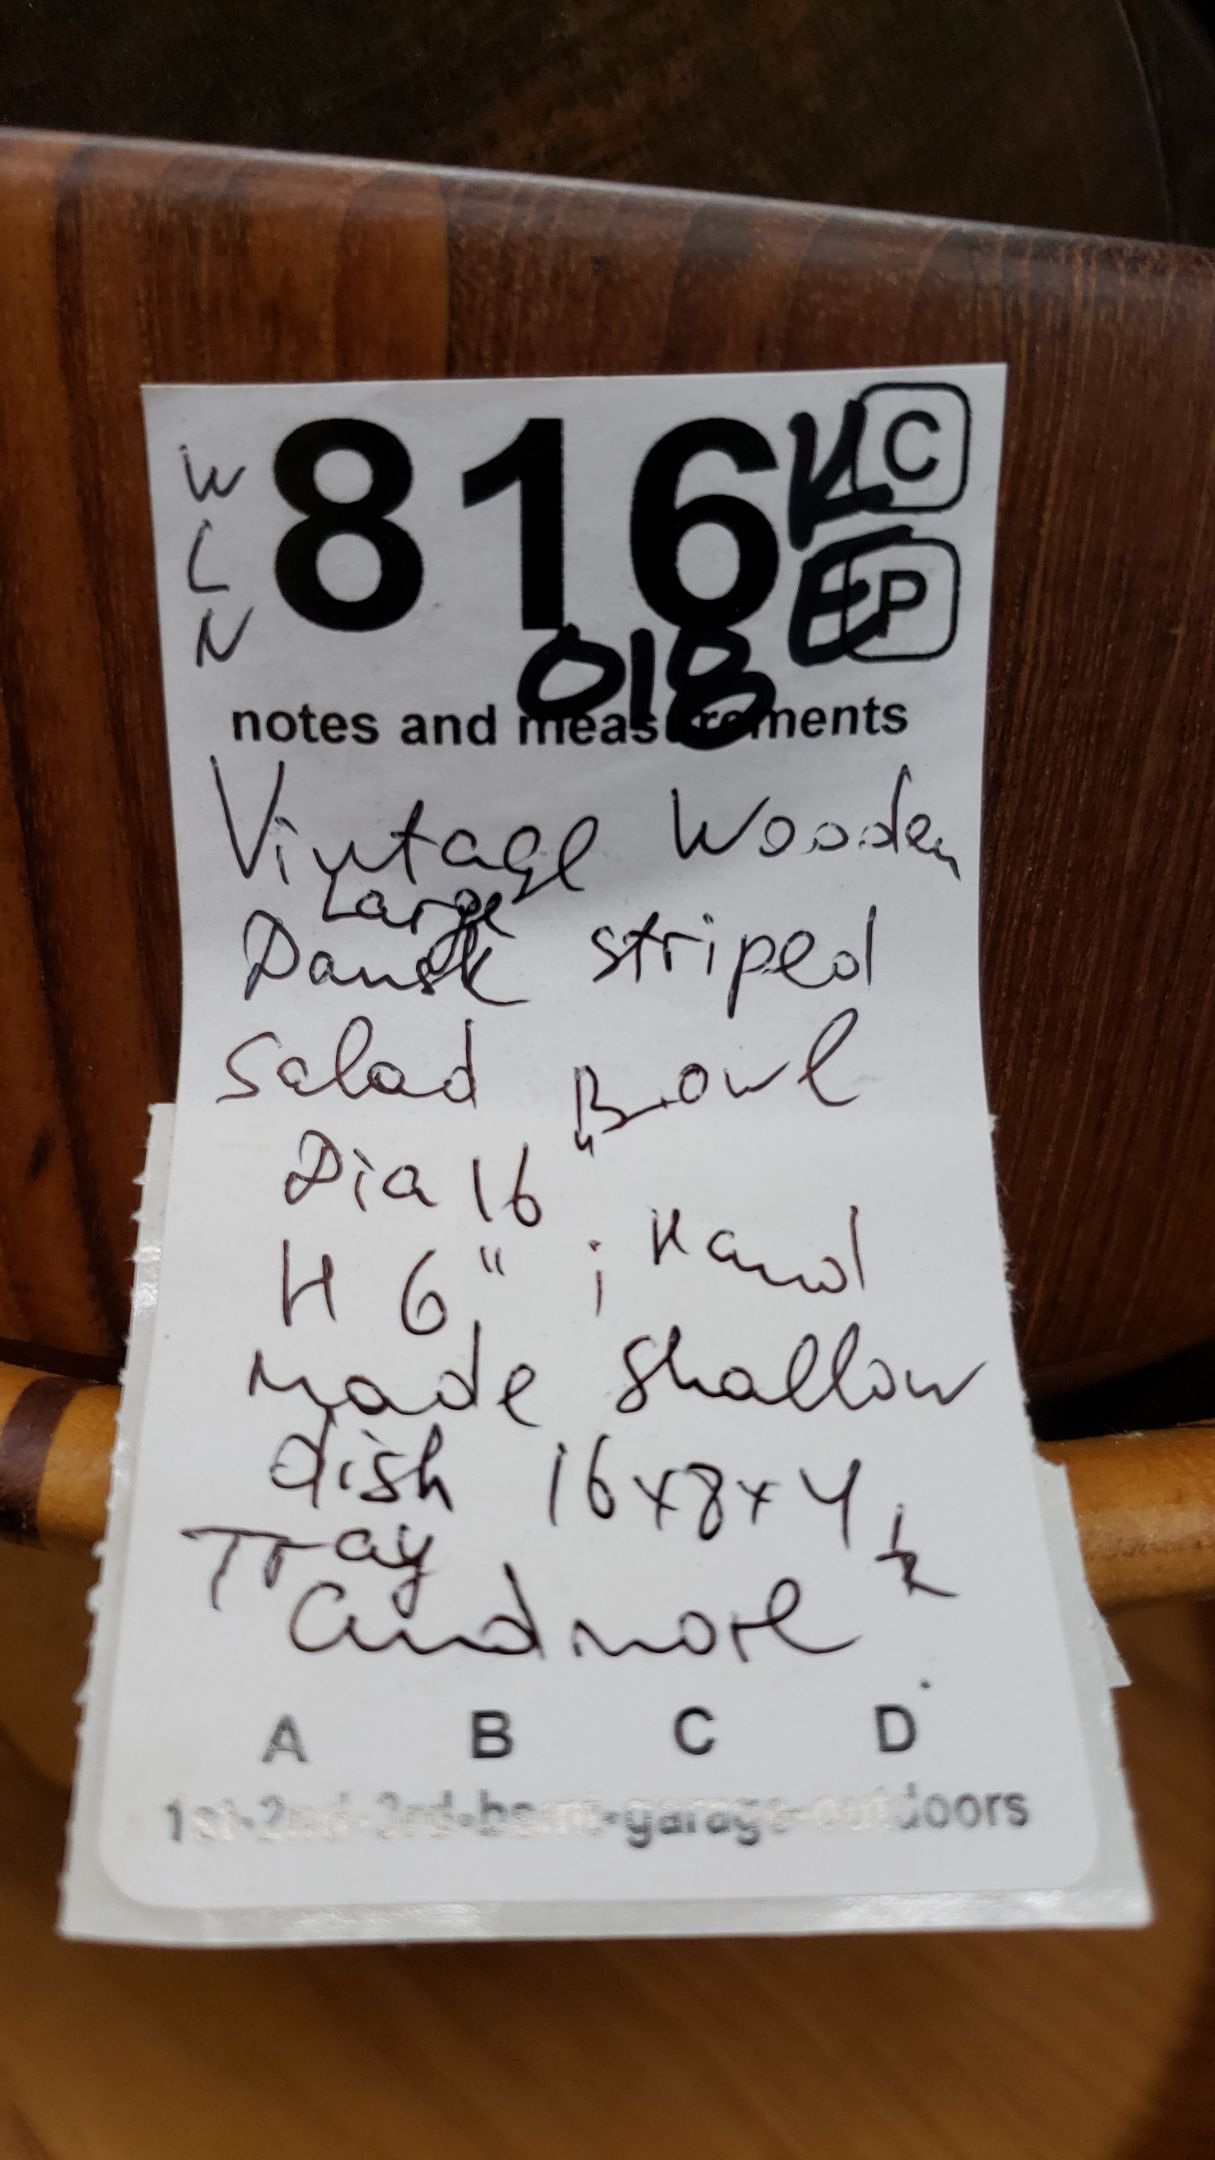 W
L
N
816
K
C
E
P
018
notes and measurements
Vintage Wooden
Large
Dansk striped
Salad Bowl
Dia 16"
H 6", ; Hand
made shallow
dish 16x8x4 1/2
Tray
and more
A B C D
1st-2nd-3rd-bsmt-garage-outdoors